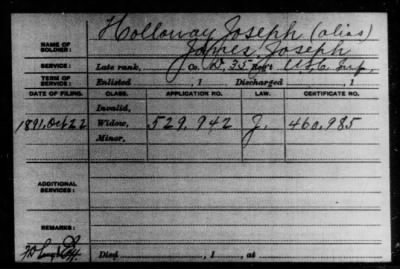 Holloway Joseph (alias)
NAME OF SOLDIER: James Joseph
SERVICE: Late rank, Co. D 35 Reg't U.S.C. Inf.
TERM OF SERVICE: Enlisted , 1 Discharged , 1
DATE OF FILING. CLASS. APPLICATION NO. LAW. CERTIFICATE NO.
Invalid,
1891, Oct 22 Widow, 529.942 J. 460.985
Minor,
ADDITIONAL SERVICES:
REMARKS:
Died , 1 , at